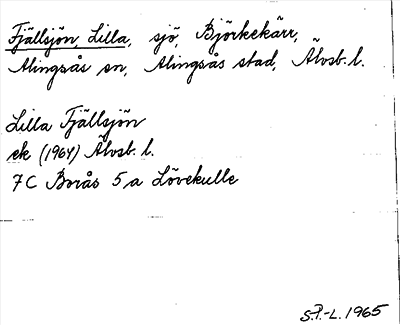 Fjällsjön, Lilla, sjö, Björkekärr,
Alingsås sn, Alingsås stad, Älvsb. l.
Lilla Fjällsjön
ek (1964) Älvsb. l.
7C Borås 5 a Lövekulle
S.P.-L. 1965